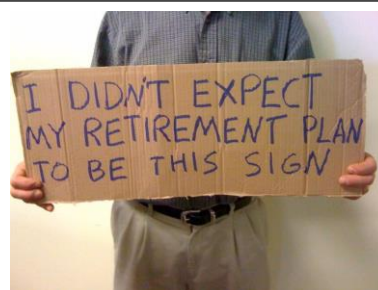 I DIDN'T EXPECT
MY RETIREMENT PLAN
TO BE THIS SIGN